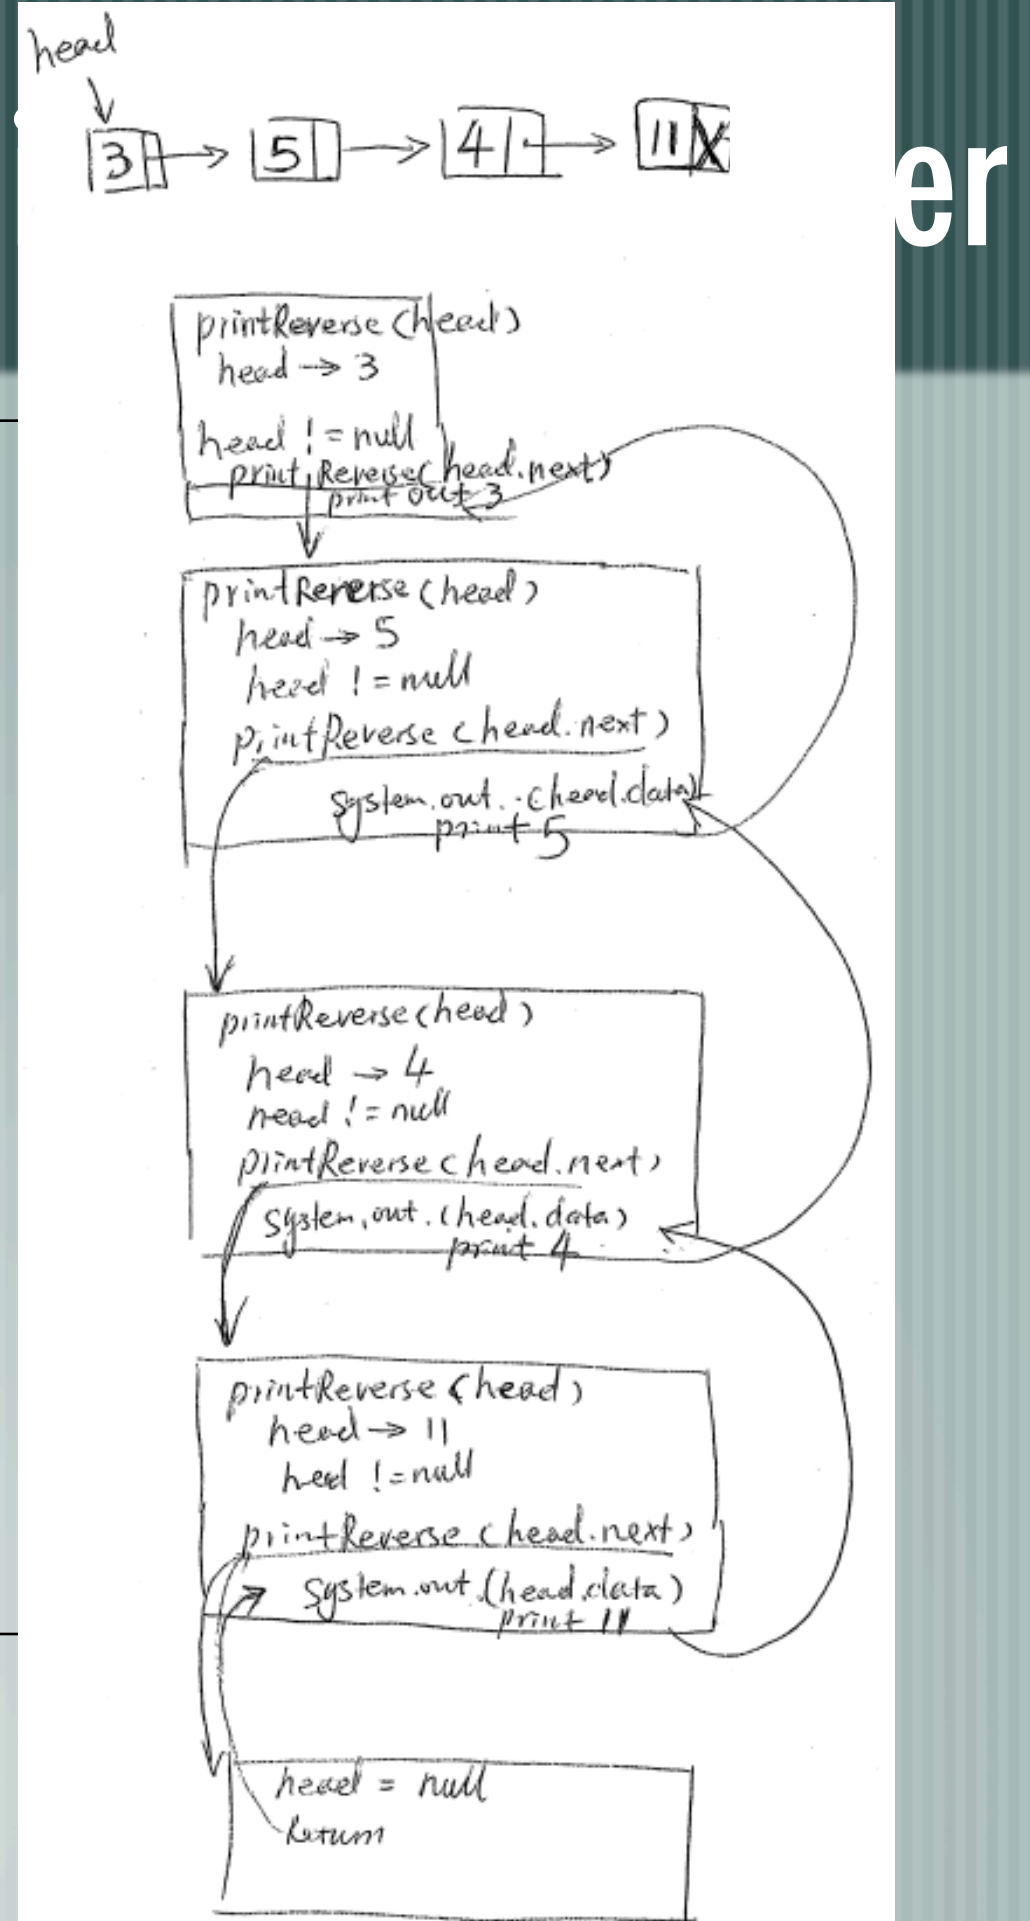 head
3 5 4 11
er
printReverse(head)
head → 3
head != null
printReverse(head.next)
print out 3
printReverse(head)
head → 5
head != null
printReverse(head.next)
system.out..(head.data)
print 5
printReverse(head)
head → 4
head != null
printReverse(head.next)
system.out.(head.data)
print 4
printReverse(head)
head → 11
hed != null
printReverse(head.next)
system.out.(head.data)
print 11
head = null
Return